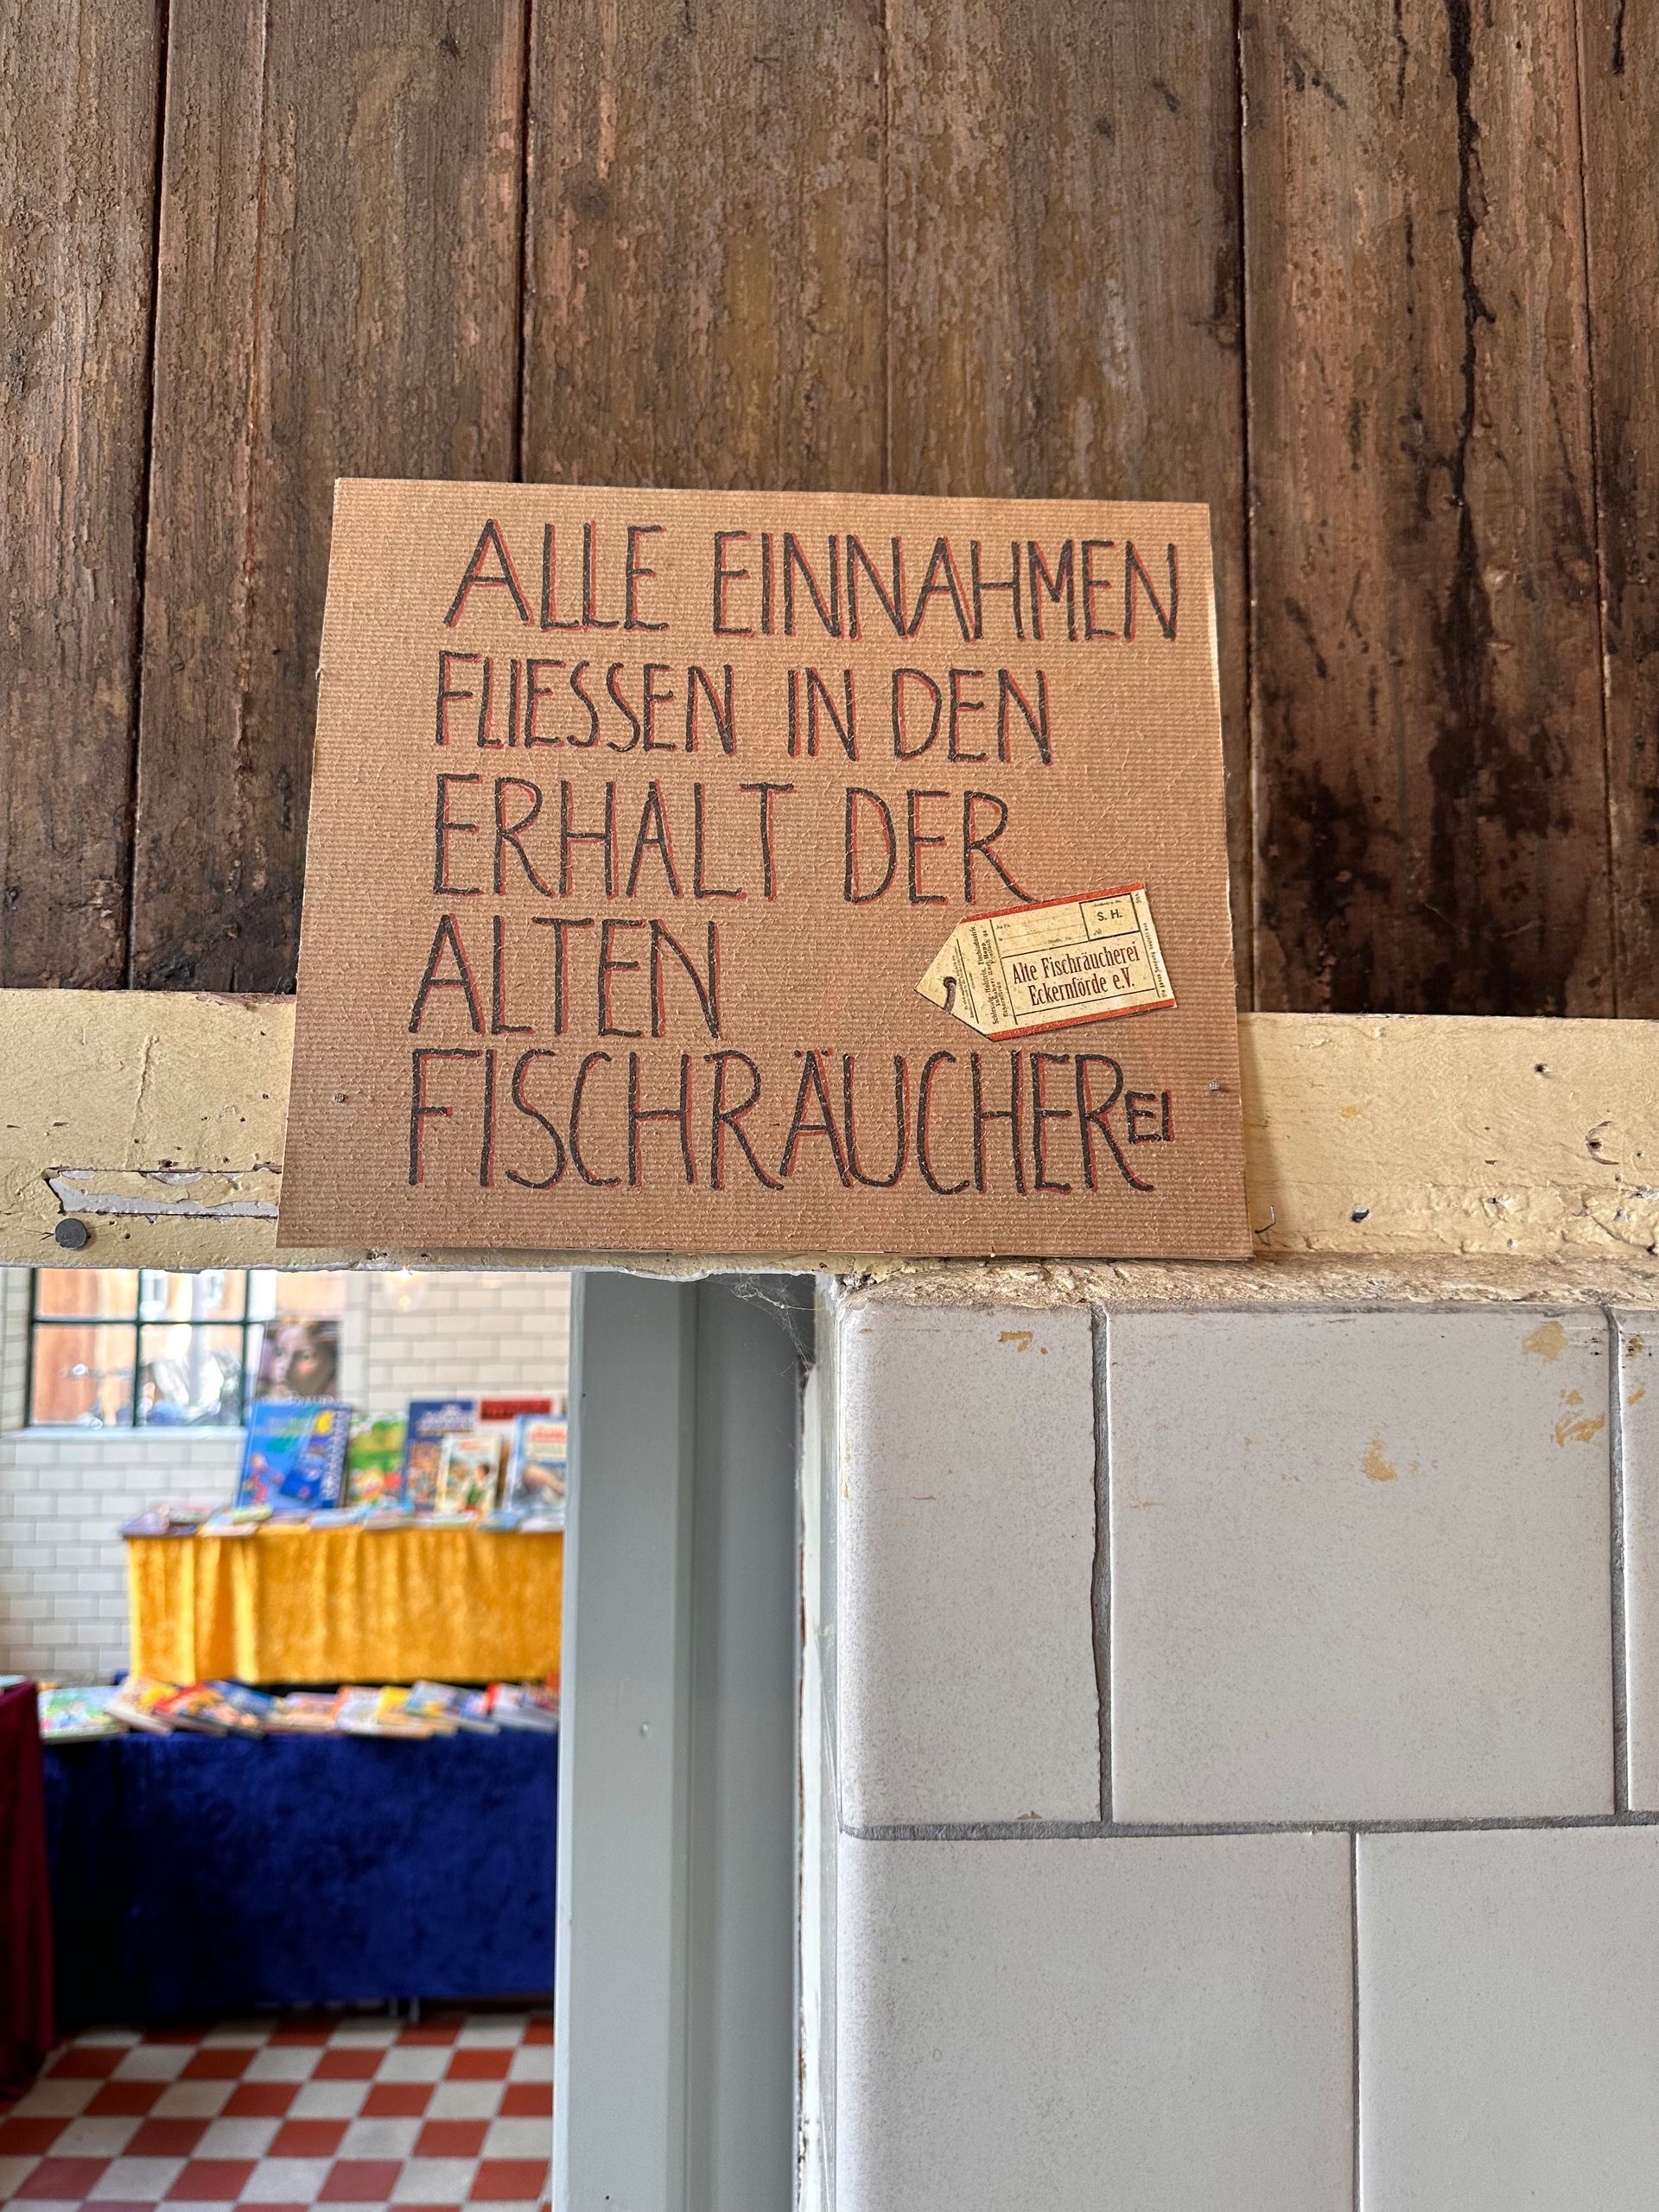 ALLE EINNAHMEN
FLIESSEN IN DEN
ERHALT DER
ALTEN
FISCHRÄUCHEREI
S. H.
Alte Fischräucherei
Eckernförde e.V.